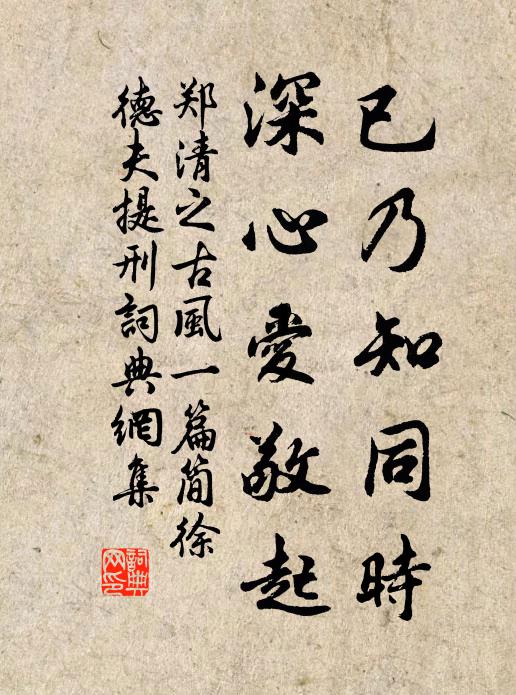 已乃知同時
深心愛敬起
郑清之古風一篇简徐
德夫提刑詞典網集
詞典網印